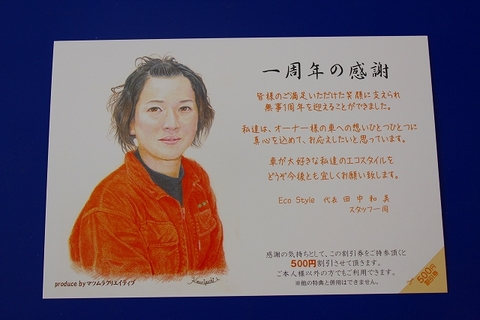 一周年の感謝
皆様のご満足いただけた笑顔に支えられ
無事1周年を迎えることができました。
私達は、オーナー様の車への想いひとつひとつに
真心を込めて、お応えしたいと思っています。
車が大好きな私達のエコスタイルを
どうぞ今後とも宜しくお願い致します。
Eco Style 代表 田中和美
スタッフ一同
感謝の気持ちとして、この割引券をご持参頂くと
500円割引させて頂きます。
ご本人様以外の方でもご利用できます。
※他の特典と併用はできません。
500円
割引券
produce by マツムラクリエイティブ